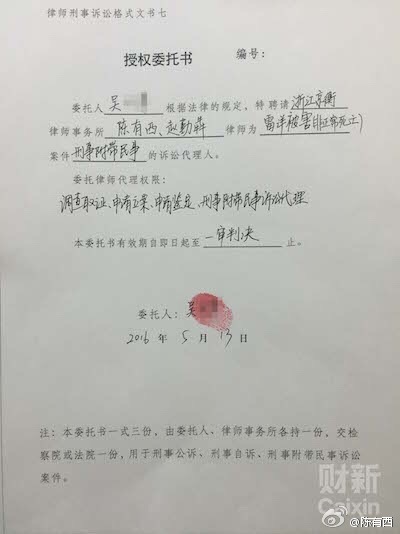 律师刑事诉讼格式文书七
授权委托书 编号:
委托人 吴 根据法律的规定,特聘请 浙江京衡
律师事务所 陈有西、赵勤荪 律师为 雷洋被害(非正常死亡)
案件 刑事附带民事 的诉讼代理人。
委托律师代理权限:
调查取证、申有立案、申有鉴定、刑事附带民事诉讼代理
本委托书有效期自即日起至 一审判决 止。
委托人: 吴
2016 年 5 月 13 日
注:本委托书一式三份,由委托人、律师事务所各持一份,交检
察院或法院一份,用于刑事公诉、刑事自诉、刑事附带民事诉讼
案件。
财新
Caixin
@陈有西